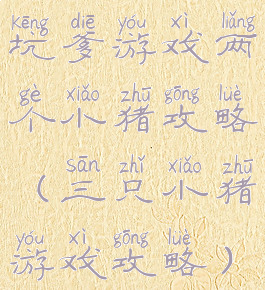 kēng diē yóu xì liǎng
坑爹游戏两
gè xiǎo zhū gōng luè
个小猪攻略
sān zhǐ xiǎo zhū
(三只小猪
yóu xì gōng luè
游戏攻略)